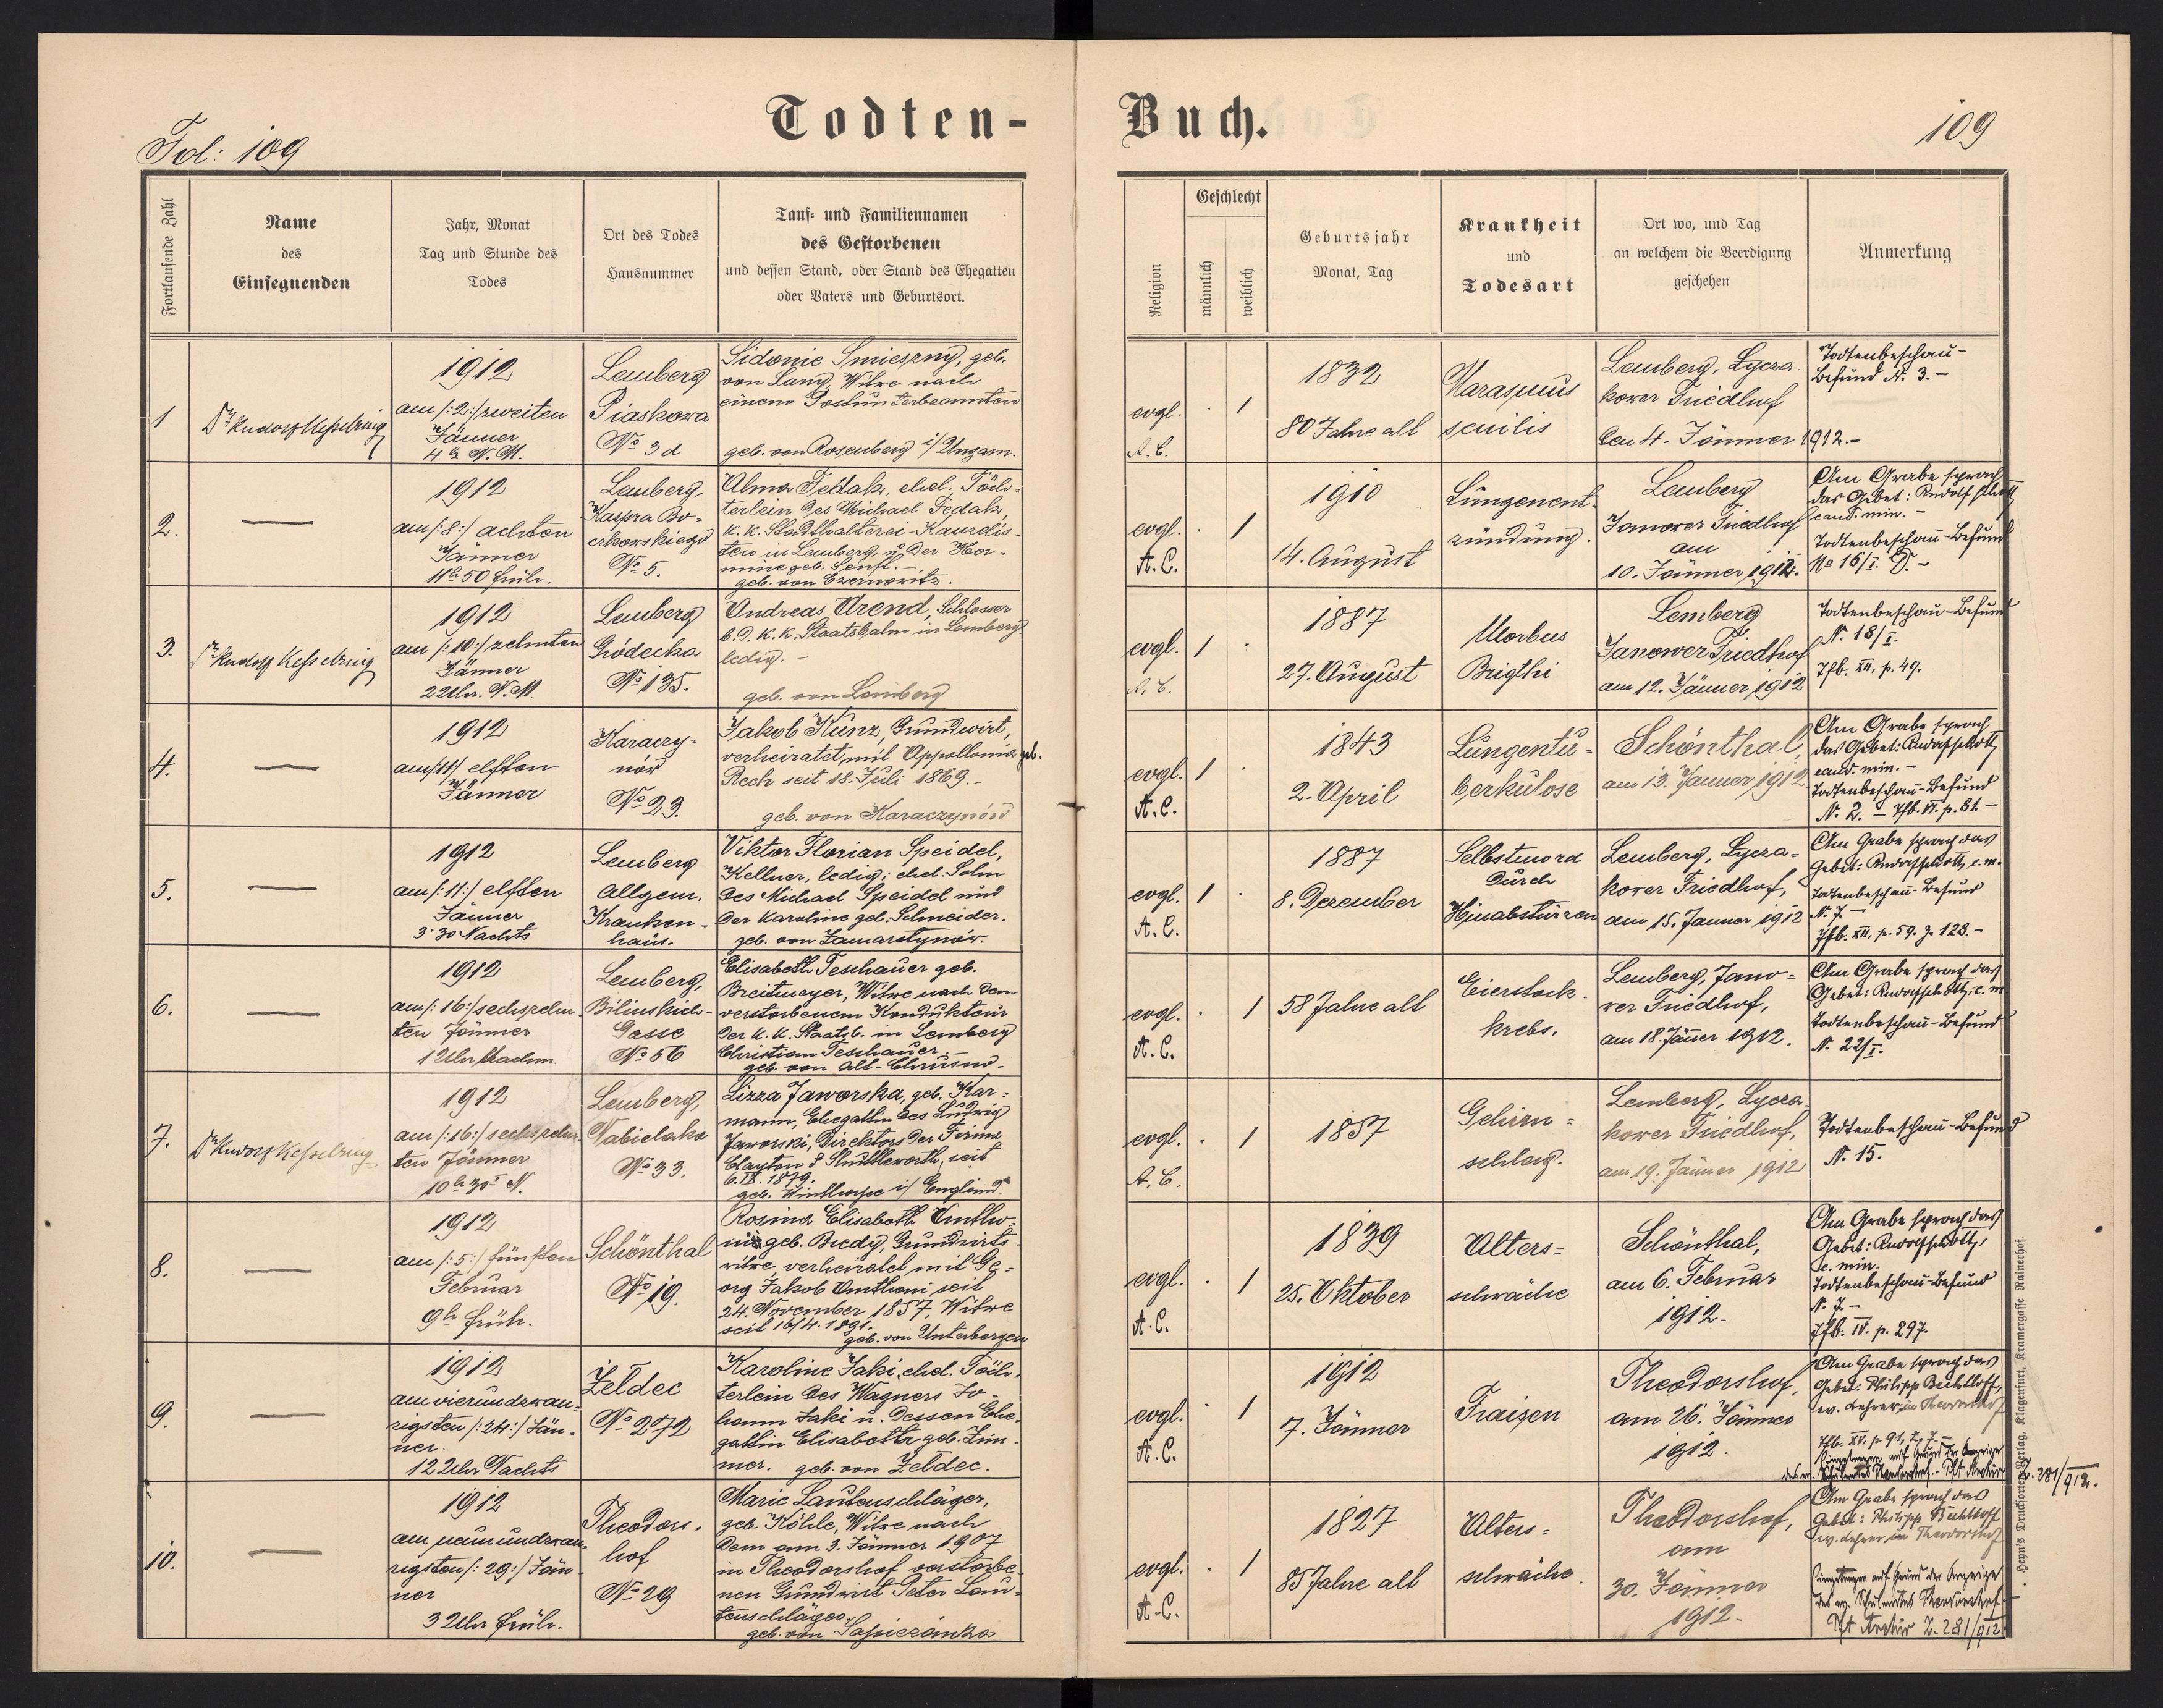 Todten-
Buch.
Fol: 109
109
Fortlaufende Zahl
Name
des
Einsegnenden
Jahr, Monat
Tag und Stunde des
Todes
Ort des Todes
Hausnummer
Tauf- und Familiennamen
des Gestorbenen
und dessen Stand, oder Stand des Ehegatten
oder Vaters und Geburtsort.
Religion
Geschlecht
männlich
weiblich
Geburtsjahr
Monat, Tag
Krankheit
und
Todesart
Ort wo, und Tag
an welchem die Beerdigung
geschehen
Anmerkung
1
Dr Rudolf Kesselring
1912
am /:2:/ zweiten
Jänner
4h N. M.
Lemberg
Piaskowa
No 3 d
Sidonie Smieszny, geb.
von Lang, Witwe nach
einem Postunterbeamten
geb. von Rosenberg i/ Ungarn.
evgl.
A. C.
1
1832
80 Jahre alt
Marasmus
senilis
Lemberg, Lycza-
kower Friedhof
den 4. Jänner 1912.-
Todtenbeschau-
Befund N. 3.-
2.
1912
am /:8:/ achten
Jänner
11h 50 früh.
Lemberg,
Kaspra Bo-
czkowskiego
No 5.
Alma Fedak, ehel. Töch-
terlein des Michael Fedak,
k. k. Statthalterei-Kanzelis-
ten in Lemberg, u. der Her-
mine geb. Senft.-
geb. von Czernowitz.
evgl.
A. C.
1
1910
14. August
Lungenent-
zündung.
Lemberg
Janower Friedhof
am
10. Jänner 1912.
Am Grabe sprach
das Gebet: Rudolf
cand. min.-
Todtenbeschau-Befund
No 16/I.
3.
Dr Rudolf Kesselring
1912
am /:10:/ zehnten
Jänner
2 Uhr. N. M.
Lemberg
Gródecka
No 135.
Andreas Arend, Schlosser
b. d. k. k. Staatsbahn in Lemberg
ledig.-
geb. von Lemberg
evgl.
A. C.
1
1887
27. August
Morbus
Brigthi
Lemberg
Janower Friedhof
am 12. Jänner 1912
Todtenbeschau-Befund
N. 18/I.
Tfb. XII. p. 49.
4.
1912
am /:11:/ elften
Jänner
Karaczy-
nów
No 23.
Jakob Kunz, Grundwirt,
verheiratet, mit Appollonia geb.
Rech seit 18. Juli 1869.-
geb. von Karaczynów
evgl.
A. C.
1
1843
2. April
Lungentu-
berkulose
Schönthal,
am 13. Jänner 1912
Am Grabe sprach
das Gebet:
cand. min.-
Todtenbeschau-Befund
N. 2. - Tfb. VI. p. 81.-
5.
1912
am /:11:/ elften
Jänner
3·30 Nachts
Lemberg
Allgem.
Kranken-
haus.
Viktor Florian Speidel,
Kellner, ledig; ehel. Sohn
des Michael Speidel und
der Karoline geb. Schneider.
geb. von Zamarstynów.
evgl.
A. C.
1
1887
8. Dezember
Selbstmord
durch
Hinabstürzen
Lemberg, Lycza-
kower Friedhof,
am 15. Jänner 1912
Am Grabe sprach das
Gebet: c. m.
Todtenbeschau-Befund
N. 7.-
Tfb. XII. p. 59. Z. 123.-
6.
1912
am /:16:/ sechszehn-
ten Jänner
1 Uhr Nachm.
Lemberg,
Bilinskich-
Gasse
No 56
Elisabeth Teschauer geb.
Breitmayer, Witwe nach dem
verstorbenem Kondukteur
der k. k. Staatsb. in Lemberg
Christian Teschauer.-
geb. von Alt-Chrusno.-
evgl.
A. C.
1
58 Jahre alt
Eierstock-
krebs.
Lemberg, Jano-
wer Friedhof,
am 18. Jänner 1912.
Am Grabe sprach das
Gebet: c. m.
Todtenbeschau-Befund
N. 22/I.
7.
Dr Rudolf Kesselring
1912
am /:16:/ sechszehn-
ten Jänner
10h 30' N.
Lemberg,
Nabielaka
No 33.
Lizza Jaworska, geb. Har-
mann, Ehegattin des Ludwig
Jaworski, Direktors der Firma
Clayton & Shuttleworth, seit
6. IX. 1879.
geb. Winthorpe i/ England.
evgl.
A. C.
1
1857
Gehirn-
schlag.
Lemberg, Lycza-
kower Friedhof,
am 19. Jänner 1912
Todtenbeschau-Befund
N. 15.
8.
1912
am /:5:/ fünften
Februar
9h früh.
Schönthal
No 19.
Rosina Elisabeth Omtho-
ni geb. Bredy, Grundwirts-
witwe, verheiratet mit Ge-
org Jakob Omthoni seit
24. November 1857, Witwe
seit 16/4. 1891.
geb. von Unterbergen
evgl.
A. C.
1
1839
25. Oktober
Alters-
schwäche
Schönthal,
am 6. Februar
1912.-
Am Grabe sprach das
Gebet:
c. min.
Todtenbeschau-Befund
N. 7.-
Tfb. IV. p. 297.
9.
1912
am vierundzwan-
zigsten /:24:/ Jän-
ner.
12 Uhr Nachts
Zeldec
No 272
Karoline Jaki, ehel. Töch-
terlein des Wagners Jo-
hann Jaki u. dessen Ehe-
gattin Elisabeth geb. Zim-
mer. geb. von Zeldec.
evgl.
A. C.
1
1912
7. Jänner
Fraisen
Theodorshof,
am 26. Jänner
1912.
Am Grabe sprach das
Gebet: Philipp Bechtloff,
ev. Lehrer in Theodorshof
Tfb. XV. p. 91, Z. 7.-
Eingetragen auf Grund der Anzeige
des ev. Schulamtes Theodorshof.- Z. 281/912.
10.
1912
am neunundzwan-
zigsten /:29:/ Jän-
ner
3 Uhr früh.
Theodors-
hof
No 29
Marie Lautenschläger,
geb. Köhle, Witwe nach
dem am 3. Jänner 1907
in Theodorshof verstorbe-
nen Grundwirt Peter Lau-
tenschläger.
geb. von Sapiezanka
evgl.
A. C.
1
1827
85 Jahre alt
Alters-
schwäche.
Theodorshof,
am
30. Jänner
1912.-
Am Grabe sprach das
Gebet: Philipp Bechtloff
ev. Lehrer in Theodorshof
Eingetragen auf Grund der Anzeige
des ev. Schulamtes Theodorshof.-
Z. 281/912
Heyn's Drucksorten-Verlag, Klagenfurt, Kramergasse Rainerhof.